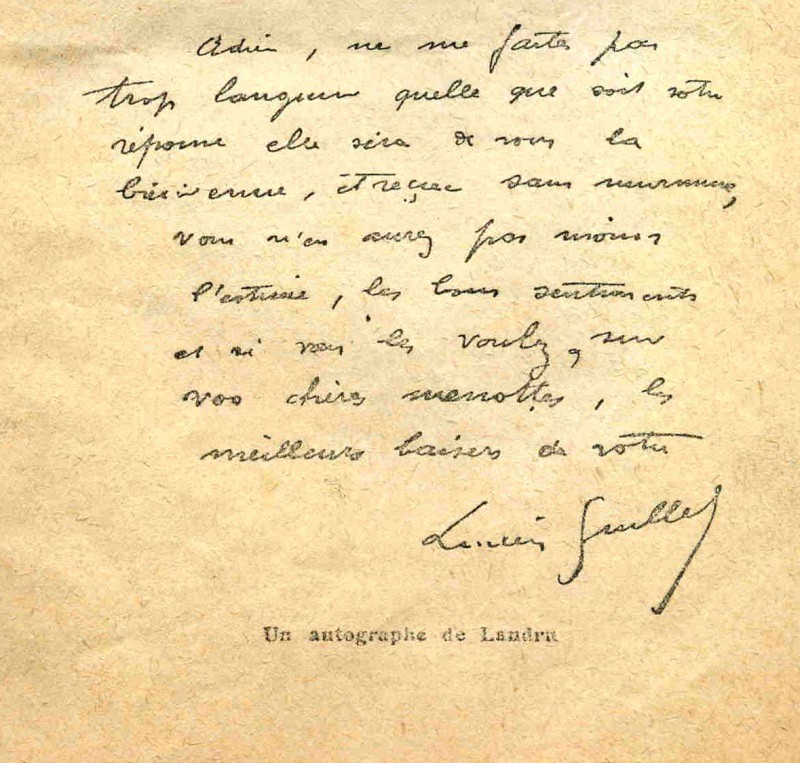 Adieu, ne me faites pas
trop languir quelle que soit votre
réponse elle sera de vous la
bienvenue, et reçue sans murmure,
vous n'en aurez pas moins
l'estime, les bons sentiments
et si vous les voulez, sur
vos chères menottes, les
meilleurs baisers de votre
Lucien Guillet
Un autographe de Landru